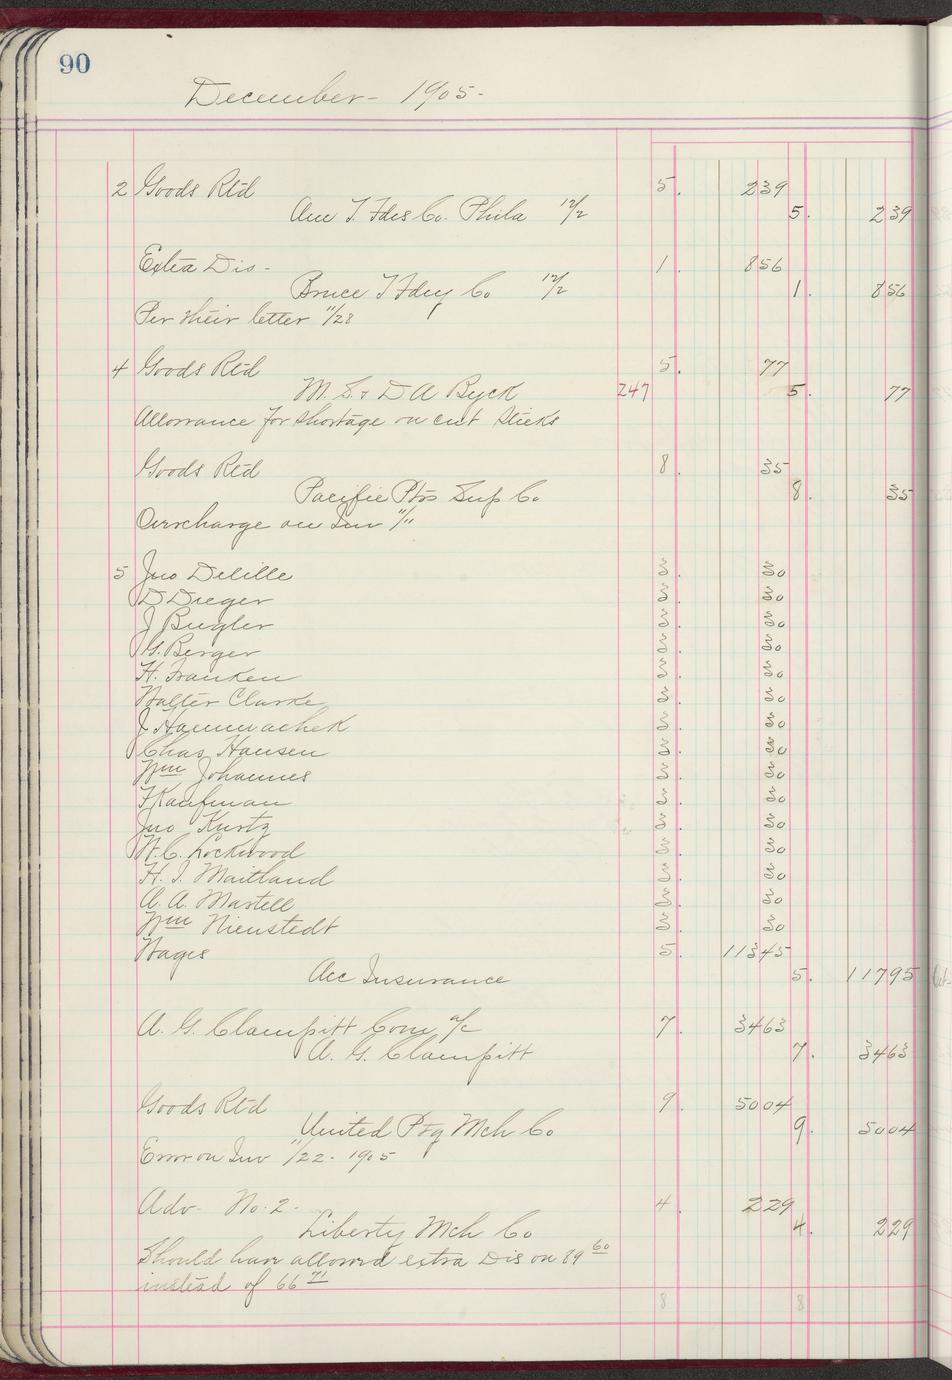 90
December - 1905 -
2 Goods Rtd 5. 239
Am T. Fdrs Co. Phila 12/2 5. 239
Extra Dis - 1. 856
Bruce T Fdry Co 12/2 1. 856
Per their letter 11/28
4 Goods Rtd 5. 77
M. S. & D A Byck 247 5. 77
Allowance for shortage on cut sticks
Goods Rtd 8. 35
Pacific Ptrs Sup Co 8. 35
Overcharge on Inv 11/11
5 Jno Delille 3. 30
D Dreger 3. 30
J Bugler 3. 30
G. Berger 3. 30
H. Franken 3. 30
Walter Clarke 3. 30
J Hammachek 3. 30
Chas Hansen 3. 30
Wm Johannes 3. 30
F Kaufman 3. 30
Jno Kurtz 3. 30
W. C. Lockwood 3. 30
H. I. Maitland 3. 30
A. A. Martell 3. 30
Wm Nienstedt 3. 30
Wages 5. 11345
Acc Insurance 5. 11795
A. G. Clampitt Com a/c 7. 3463
A. G. Clampitt 7. 3463
Goods Rtd 9. 5004
United Ptg Mch Co 9. 5004
Error on Inv 11/22 - 1905
Adv - No. 2 - 4. 229
Liberty Mch Co 4. 229
Should have allowed extra Dis on 89 60
instead of 66 71
8 8